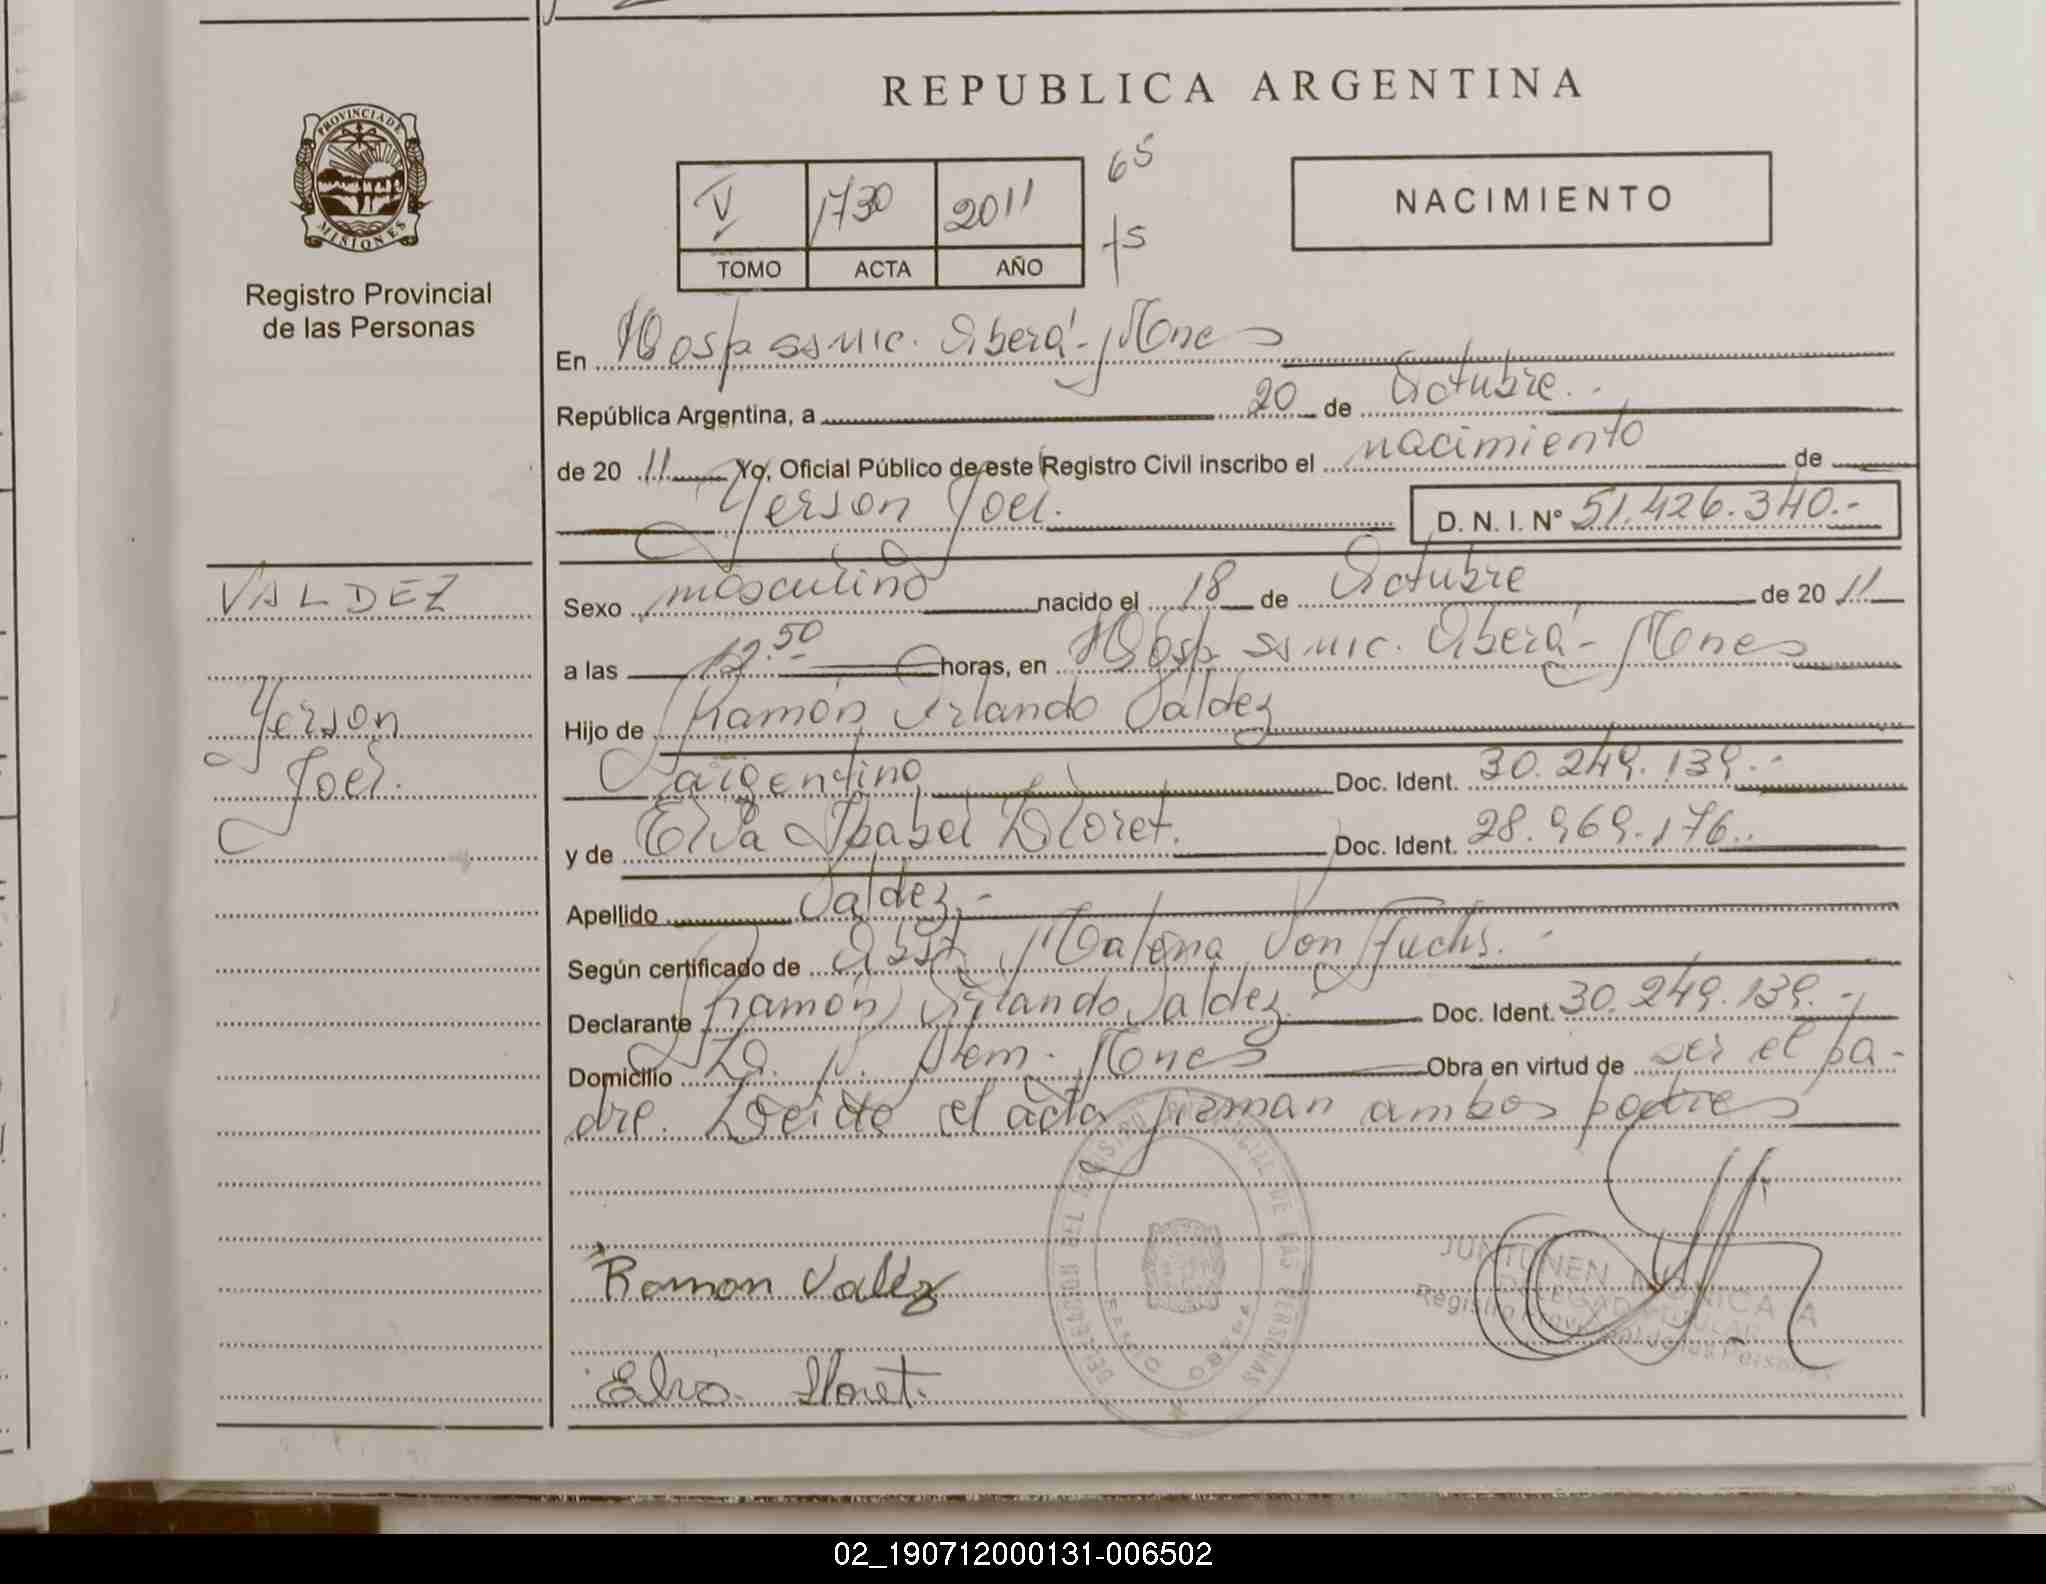 REPUBLICA ARGENTINA
PROVINCIA DE
MISIONES
Registro Provincial
de las Personas
V 1730 2011
TOMO ACTA AÑO
65
75
NACIMIENTO
En Hosp SSMIC. Oberá - Mnes
República Argentina, a 20 de Octubre.
de 20 11 Yo, Oficial Público de este Registro Civil inscribo el nacimiento de
Yerson Joel. D. N. I. Nº 51.426.340.-
VALDEZ
Yerson
Joel.
Sexo masculino nacido el 18 de Octubre de 20 11
a las 12.50 horas, en Hosp SSMIC. Oberá - Mnes
Hijo de Ramón Orlando Valdez
argentino Doc. Ident. 30.249.139.-
y de Elva Isabel Lloret. Doc. Ident. 28.969.176.
Apellido Valdez.-
Según certificado de Obst Malena Von Fuchs.-
Declarante Ramón Orlando Valdez Doc. Ident. 30.249.139.-
Domicilio L. N. Alem - Mnes Obra en virtud de ser el pa-
dre. Leida el acta firman ambos padres
Ramon Valdez
Elva Lloret.
JUNTUNEN MONICA A
DELEGADA TITULAR
Registro Provincial de las Personas
02_190712000131-006502